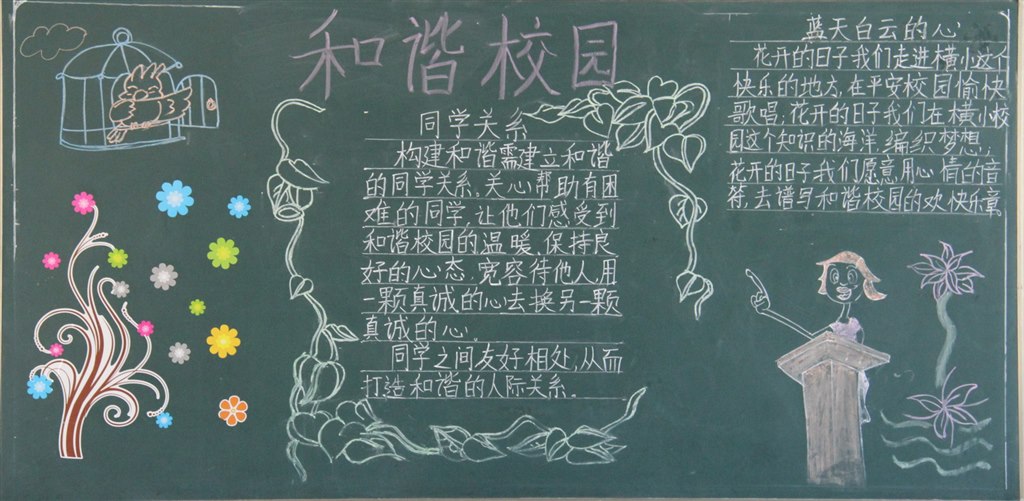 和谐校园
同学关系
构建和谐需建立和谐
的同学关系,关心帮助有困
难的同学,让他们感受到
和谐校园的温暖,保持良
好的心态,宽容待他人,用
一颗真诚的心去换另一颗
真诚的心。
同学之间友好相处,从而
打造和谐的人际关系。
蓝天白云的心
花开的日子我们走进横小这个
快乐的地方,在平安校园愉快
歌唱;花开的日子我们在横小校
园这个知识的海洋,编织梦想,
花开的日子我们愿意,用心情的音
符,去谱写和谐校园的欢快乐章